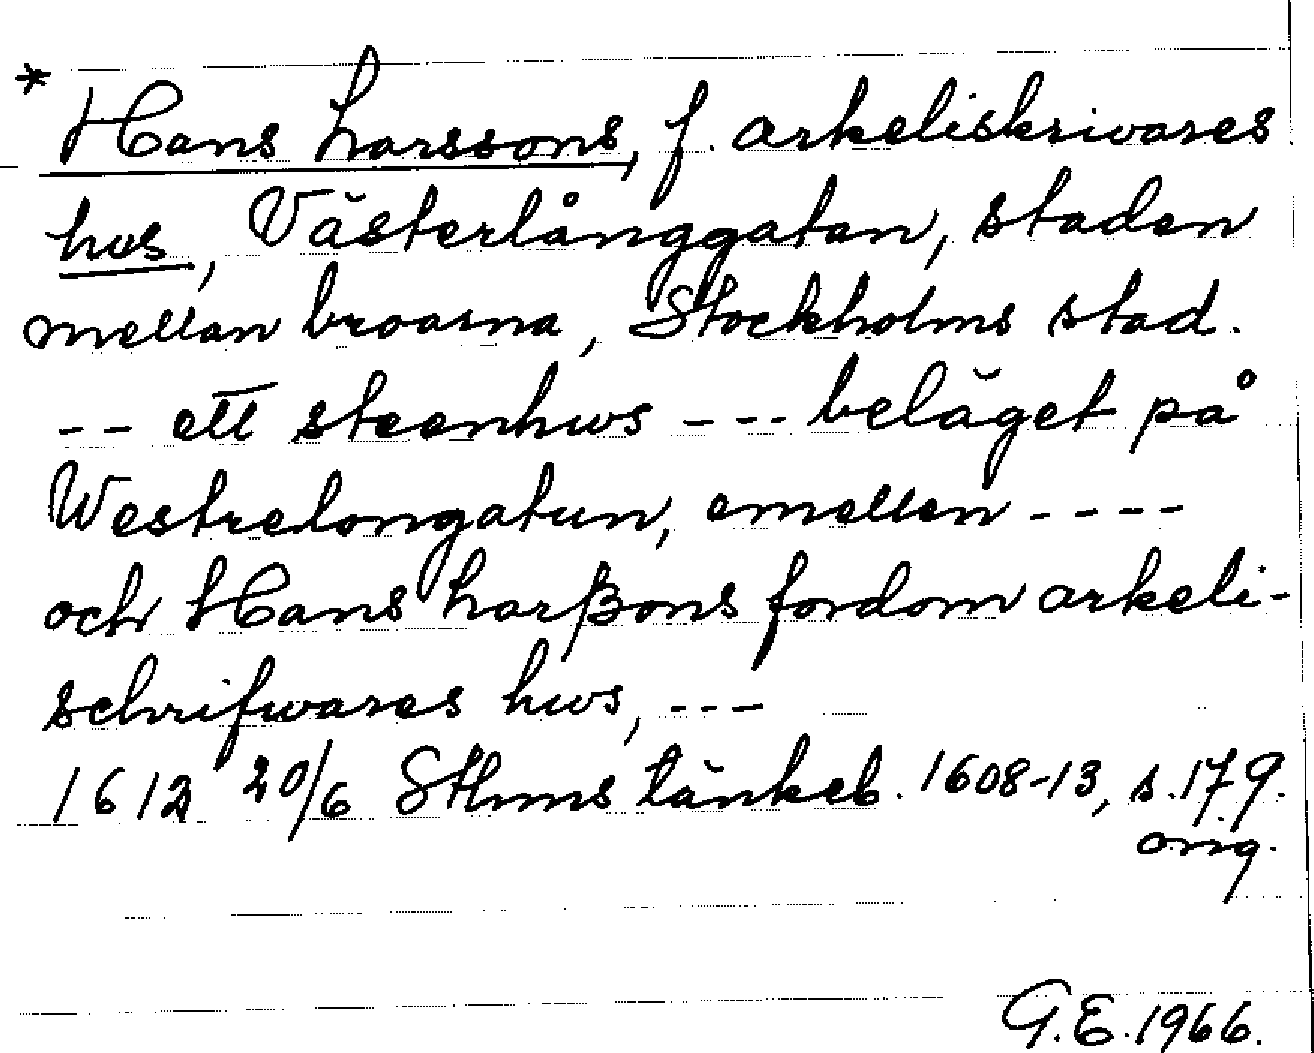 * Hans Larssons, f. arkeliskrivares
hus, Västerlånggatan, staden
mellan broarna, Stockholms stad.
-- ett steenhws --- beläget på
Westrelongatun, emellen ----
och Hans Larßons fordom arkeli-
schrifwares hws, ---
1612 20/6 Sthms tänkeb. 1608-13, s. 179.
orig.
G.E. 1966.